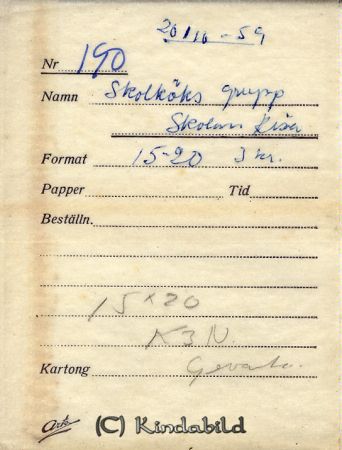 20/10 - 59
Nr 190
Namn Skolköks grupp
Skolan Kisa
Format 15-20 3 kr.
Papper Tid
Beställn.
15 x 20
K3N
Kartong Gevato.
Arte (C) Kindabild